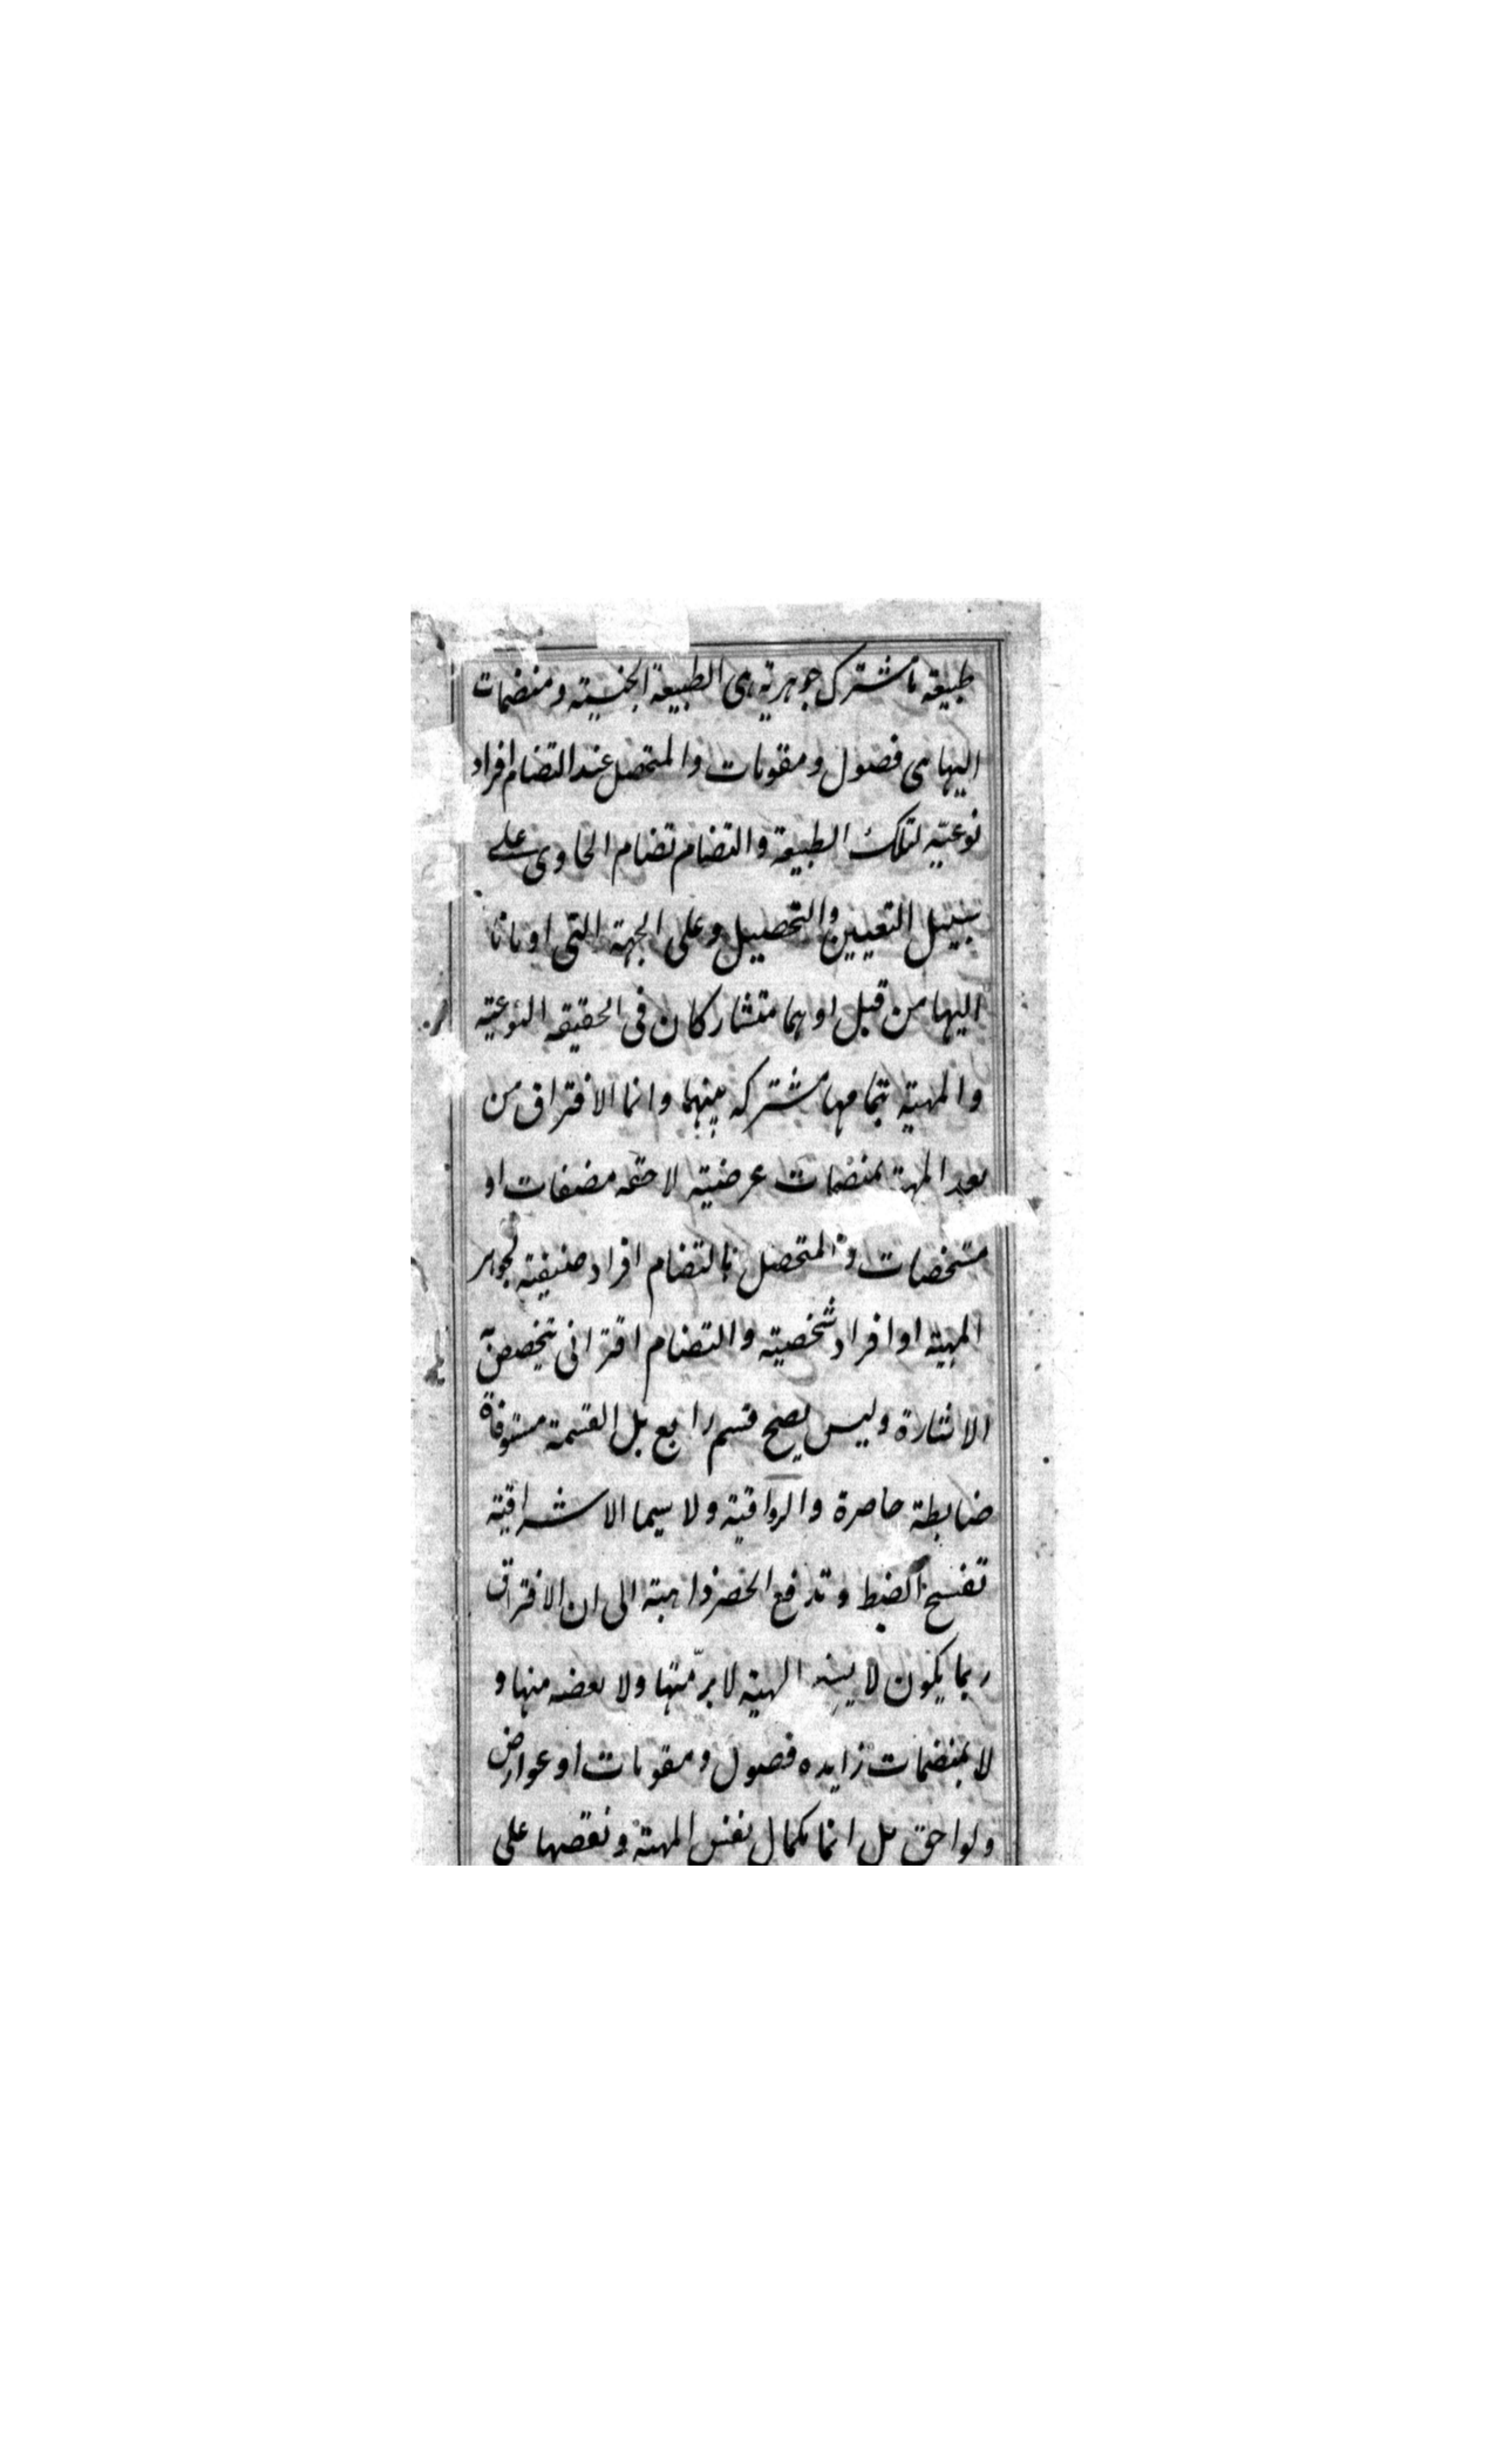 طبيعة ما مشترك جوهرية هى الطبيعة الجنسية و منضمات
اليها هى فصول و مقومات والمتحصل عند التضام افراد
نوعيّه لتلك الطبيعة و التضام تضام الحاوى على
سبيل التعيين والتحصيل و على الجهة التى اومانا
اليها من قبل او هما متشاركان فى الحقيقه النوعية
والمهية بتمامها مشتركه بينهما وانما الافتراق من
بعد المهية بمنضمات عرضية لاحقه مصنفات او
مشخصات و المتحصل بالتضام افراد صنيفية لجوهر
المهية او افراد شخصية والتضام اقترانى
الاشارة وليس يصح قسم رابع بل القسمة مستوفاة
ضابطة حاصرة والرواقية ولا سيما الاشراقية
تفسخ الضبط و تدفع الحصر ذاهبة الى ان الافتراق
ربما يكون لا المهية لا برمّتها ولا بعضه منها و
لا بمنضمات زايده فصول و مقومات او عوارض
ولواحق بل انما بكمال نفس المهية و نقصها على